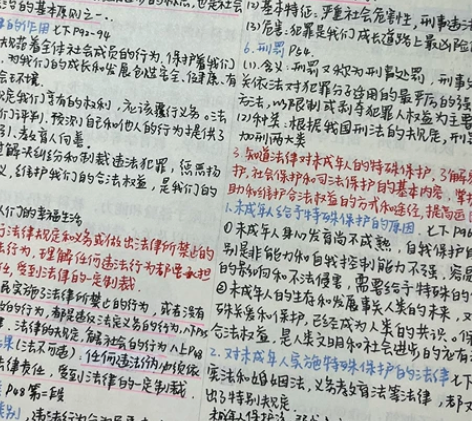 治的基本原则之一.
的作用 七下P92-94
规范着全体社会成员的行为,保护着我们
,为我们的成长和发展创造安全、健康、有
会环境.
定我们享有的权利,应该履行义务。法
们评判、预测自己和他人的行为提供了
引、教育人向善.
过解决纠纷和制裁违法犯罪,惩恶扬
义,维护我们的合法权益,是我们的
人们的幸福生活
行法律规定和义务或做出法律所禁止的
法行为,理解任何违法行为都要承担
任,受到法律的一定制裁.
实施了法律所禁止的行为,或者没有
的行为,都是违反法定义务的行为,
、法律的规定,危害社会的行为 八上P48
(法不可违):任何违法行为必须依
律责任,受到法律的一定制裁.
P48 第二段
类别),违法行为
(2)基本特征:严重社会危害性,刑事违法
(3)危害:犯罪是我们成长道路上最凶险
6.刑罚 P54.
(1).含义:刑罚又称为刑事处罚,刑事
关依法对犯罪分子适用的最严厉的强
方法,以限制或剥夺犯罪人权益为主要
(2)种类:根据我国刑法的规定,刑
加刑两大类
3.知道法律对未成年人的特殊保护,了解
社会保护和司法保护的基本内容,掌
助和维护合法权益的方式和途径,提高
1.未成年人给予特殊保护的原因 七下P96
①未成年人身心发育尚不成熟,自我保护
别是非能力和自我控制能力不强,容易
的影响和不法侵害,需要给予特殊的
②未成年人的生存和发展事关人类的未来,
殊关爱和保护,已经成为人类的共识。保
合法权益,是人类文明和社会进步的应有
2.对未成年人实施特殊保护的法律 七下
宪法和婚姻法,义务教育法等法律,都
出了特别规定.